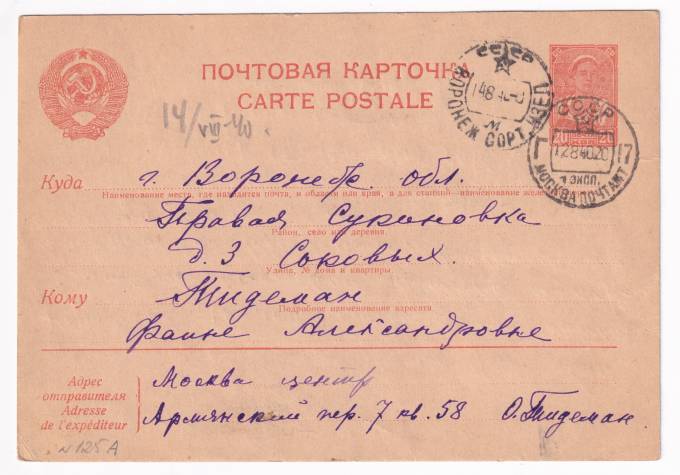 ПОЧТОВАЯ КАРТОЧКА
CARTE POSTALE
СССР
ВОРОНЕЖ СОРТ
14840
СССР
1284020
Г 17
1 ЭКСП.
МОСКВА ПОЧТАМТ
20 20
14/VIII-40.
Куда г. Воронеж обл.
Наименование места, где находится почта, и области или края, а для станций - наименование
Правая Сукновка
Район, село или деревня.
д. 3 Соковых.
Улица, № дома и квартиры
Кому Тидеман
Подробное наименование адресата
Фаине Александровне
Адрес отправителя
Adresse de l'expéditeur
Москва центр
Армянский пер. 7 кв. 58 О. Тидеман.
N 125 А